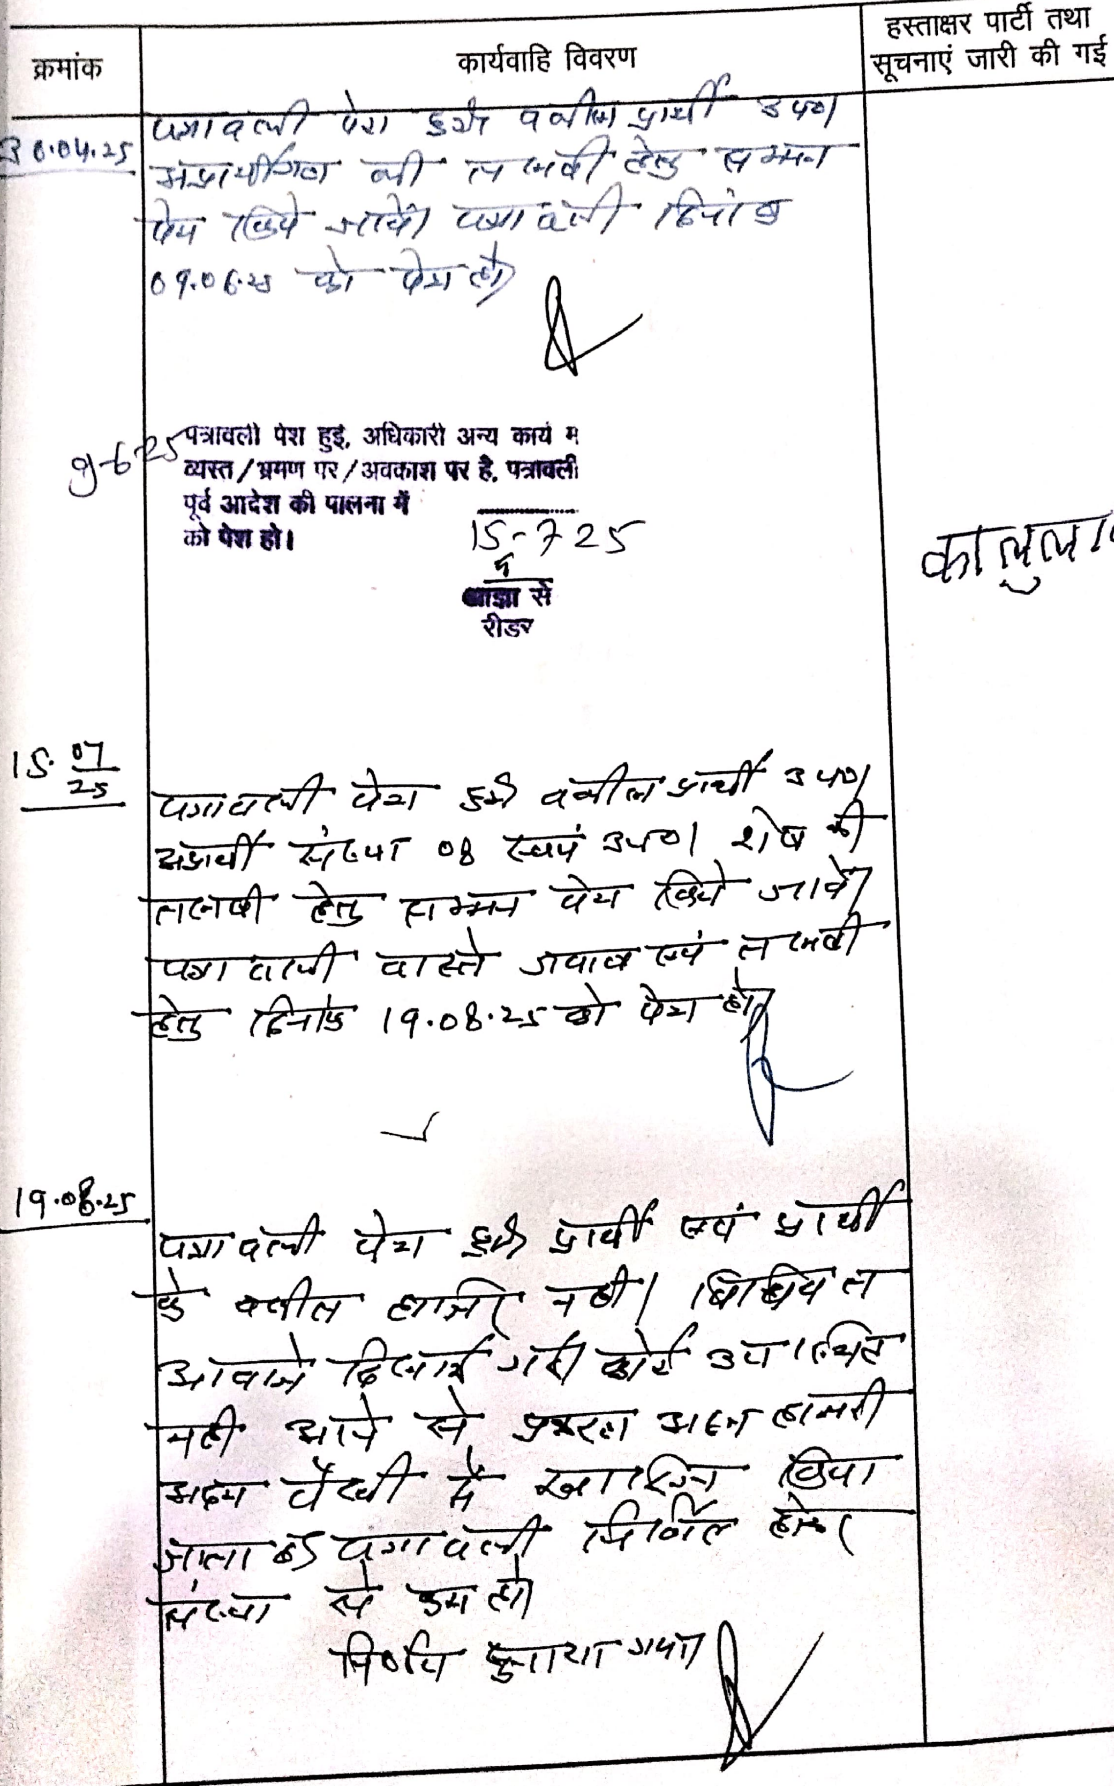 क्रमांक
कार्यवाहि विवरण
हस्ताक्षर पार्टी तथा
सूचनाएं जारी की गई
30.04.25
पत्रावली पेश हुई। वकील प्रार्थी उप०।
अप्रार्थीगण की तलबी हेतु सम्मन
पेश किये जावें। पत्रावली दिनांक
09.06.25 को पेश हो।
9-6-25
पत्रावली पेश हुई, अधिकारी अन्य कार्य में
व्यस्त/भ्रमण पर/अवकाश पर है, पत्रावली
पूर्व आदेश की पालना में
15-7-25
को पेश हो।
आज्ञा से
रीडर
कालुला
15.07/25
पत्रावली पेश हुई। वकील प्रार्थी उप०।
अप्रार्थी संख्या 08 स्वयं उप०। शेष की
तलबी हेतु सम्मन पेश किये जावें।
पत्रावली वास्ते जवाब एवं तलबी
हेतु दिनांक 19.08.25 को पेश हो।
19.08.25
पत्रावली पेश हुई। प्रार्थी एवं प्रार्थी
के वकील हाजिर नही। विधिवत
आवाजे दिलाई गई। कोई उपस्थित
नही आने से प्रकरण अदम हाजरी
अदम पैरवी में खारिज किया
जाता है। पत्रावली निर्णित होकर
संख्या से कम हो।
निर्णय सुनाया गया।